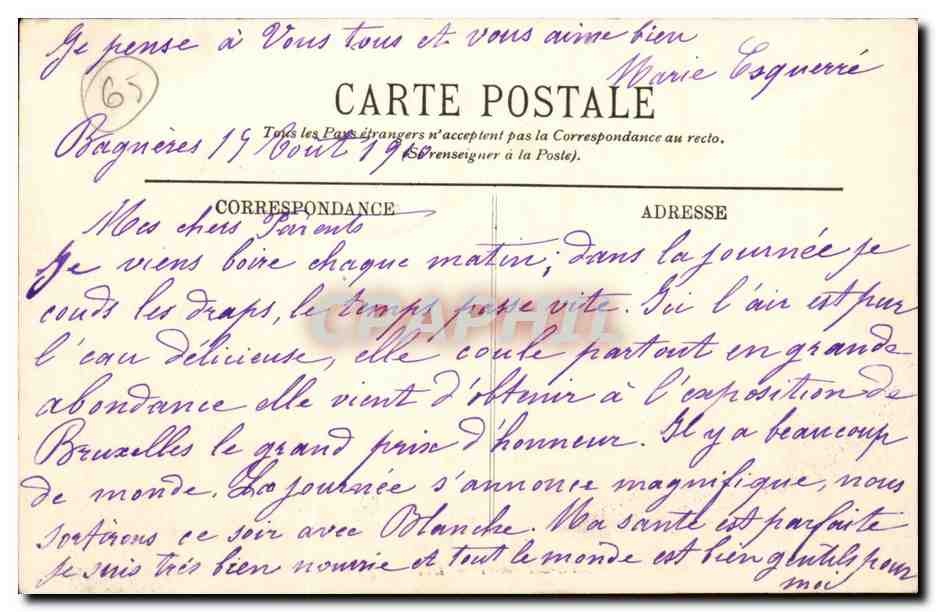 Je pense à Vous tous et vous aime bien
Marie Esquerré
65
CARTE POSTALE
Tous les Pays étrangers n'acceptent pas la Correspondance au recto.
(Se renseigner à la Poste).
Bagnères 19 Aout 1910
CORRESPONDANCE
ADRESSE
Mes chers Parents
Je viens boire chaque matin; dans la journée je
couds les draps, le temps passe vite. Ici l'air est pur
l'eau délicieuse, elle coule partout en grande
abondance elle vient d'obtenir à l'exposition de
Bruxelles le grand prix d'honneur. Il y a beaucoup
de monde. La journée s'annonce magnifique, nous
sortirons ce soir avec Blanche. Ma santé est parfaite
je suis très bien nourrie et tout le monde est bien gentils pour
moi
CPAPHIL